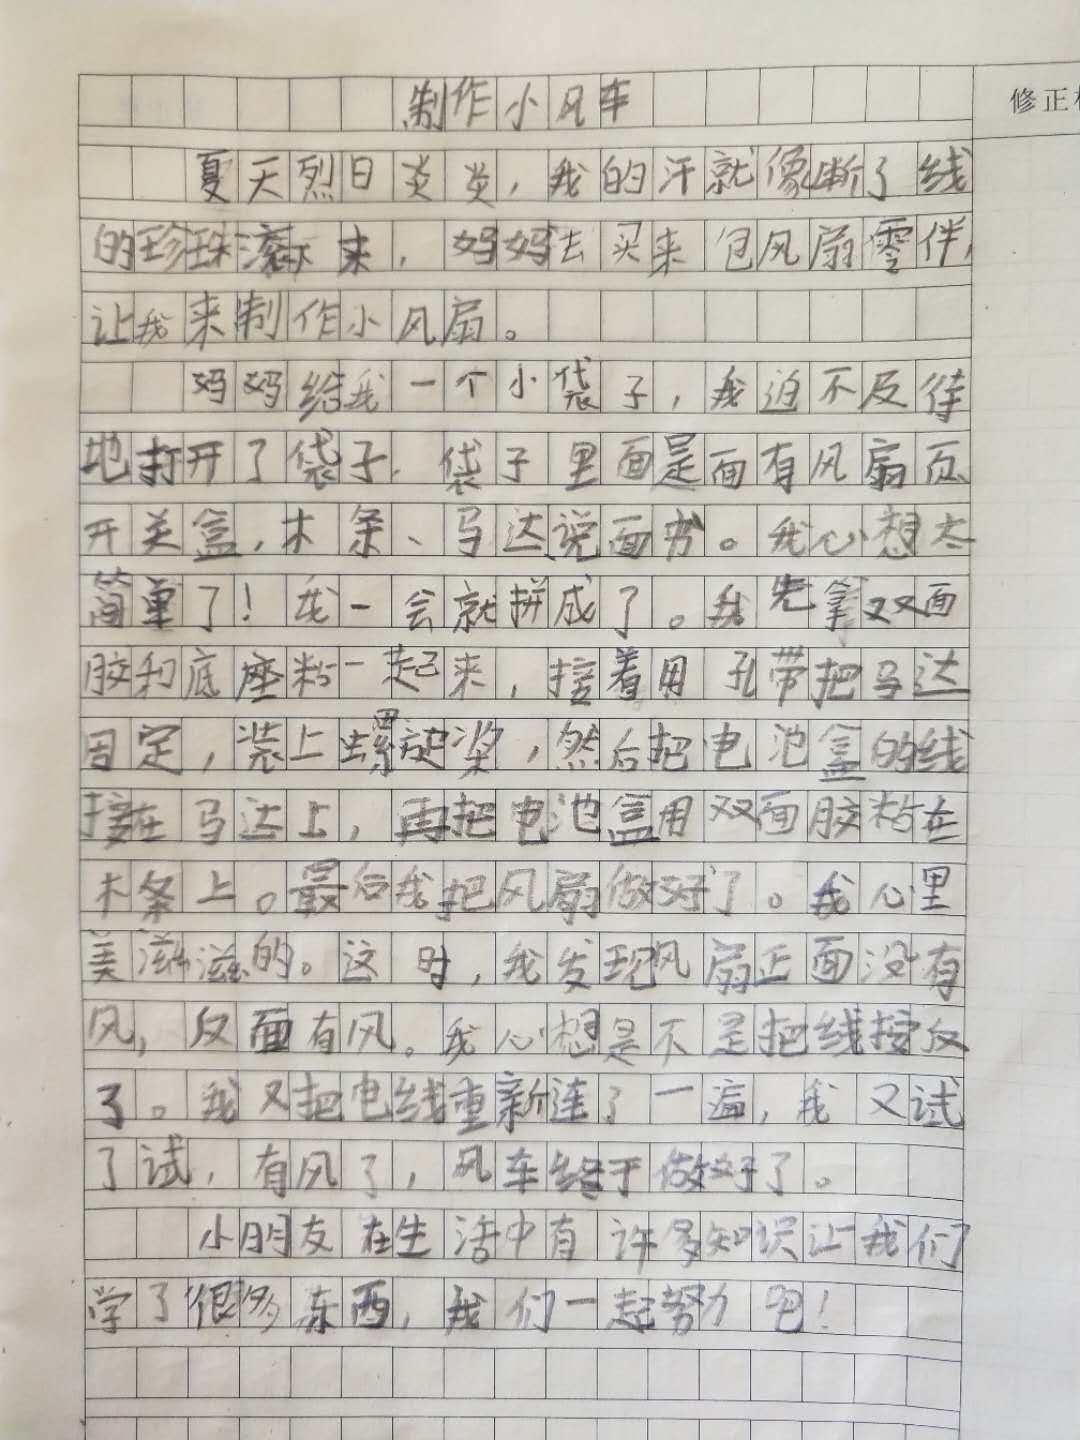 修正
制作小风车
夏天烈日炎炎，我的汗就像断了线
的珍珠滚下来，妈妈去买来包风扇零件，
让我来制作小风扇。
妈妈给我一个小袋子，我迫不及待
地打开了袋子，袋子里面是面有风扇页、
开关盒，木条、马达说面书。我心想太
简单了！我一会就拼成了。我先拿双面
胶和底座粉一起来，接着用孔带把马达
固定，装上螺旋桨，然后把电池盒的线
接在马达上，再把电池盒用双面胶粘在
木条上。最后我把风扇做好了。我心里
美滋滋的。这时，我发现风扇正面没有
风，反面有风。我心想是不是把线接反
了。我又把电线重新连了一遍，我又试
了试，有风了，风车终于做好了。
小朋友在生活中有许多知识让我们
学了很多东西，我们一起努力吧！